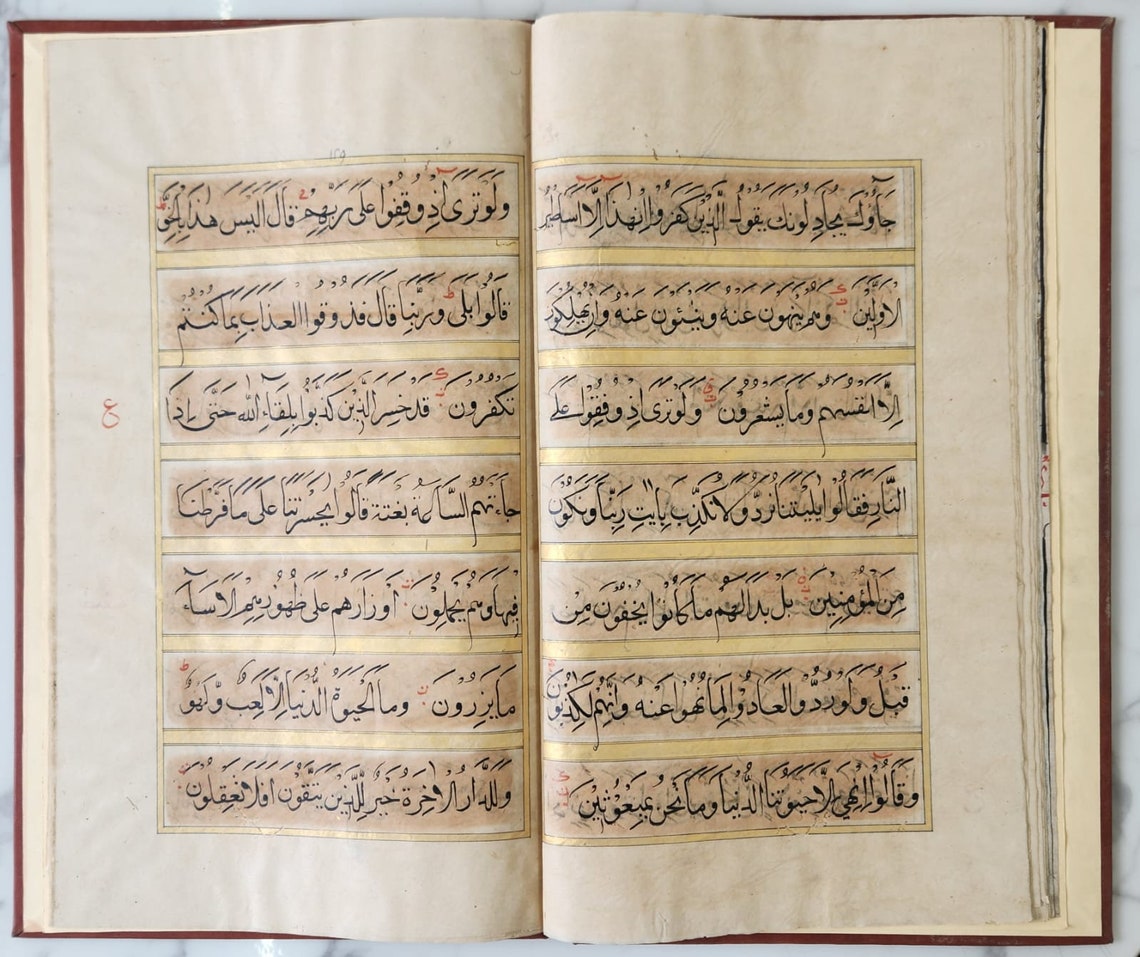 جَآؤُكَ يُجَادِلُونَكَ يَقُولُ الَّذِينَ كَفَرُوا اِنْ هٰذَا اِلَّا اَسَاطِيرُ
الاَوَّلِينَ وَهُمْ يَنْهَوْنَ عَنْهُ وَيَنْـَٔوْنَ عَنْهُ وَاِنْ يُهْلِكُونَ
اِلَّا اَنْفُسَهُمْ وَمَا يَشْعُرُونَ وَلَوْ تَرٰى اِذْ وُقِفُوا عَلَى
النَّارِ فَقَالُوا يٰلَيْتَنَا نُرَدُّ وَلَا نُكَذِّبَ بِاٰيٰتِ رَبِّنَا وَنَكُونَ
مِنَ الْمُؤْمِنِينَ بَلْ بَدَا لَهُمْ مَا كَانُوا يُخْفُونَ مِنْ
قَبْلُ وَلَوْ رُدُّوا لَعَادُوا لِمَا نُهُوا عَنْهُ وَاِنَّهُمْ لَكٰذِبُونَ
وَقَالُوا اِنْ هِيَ اِلَّا حَيٰوتُنَا الدُّنْيَا وَمَا نَحْنُ بِمَبْعُوثِينَ
وَلَوْ تَرٰى اِذْ وُقِفُوا عَلٰى رَبِّهِمْ قَالَ اَلَيْسَ هٰذَا بِالْحَقِّ
قَالُوا بَلٰى وَرَبِّنَا قَالَ فَذُوقُوا الْعَذَابَ بِمَا كُنْتُمْ
تَكْفُرُونَ قَدْ خَسِرَ الَّذِينَ كَذَّبُوا بِلِقَاءِ اللّٰهِ حَتّٰى اِذَا
ع
جَاءَتْهُمُ السَّاعَةُ بَغْتَةً قَالُوا يٰحَسْرَتَنَا عَلٰى مَا فَرَّطْنَا
فِيهَا وَهُمْ يَحْمِلُونَ اَوْزَارَهُمْ عَلٰى ظُهُورِهِمْ اَلَا سَآءَ
مَا يَزِرُونَ وَمَا الْحَيٰوةُ الدُّنْيَا اِلَّا لَعِبٌ وَّلَهْوٌ
وَلَلدَّارُ الْاٰخِرَةُ خَيْرٌ لِلَّذِينَ يَتَّقُونَ اَفَلَا تَعْقِلُونَ